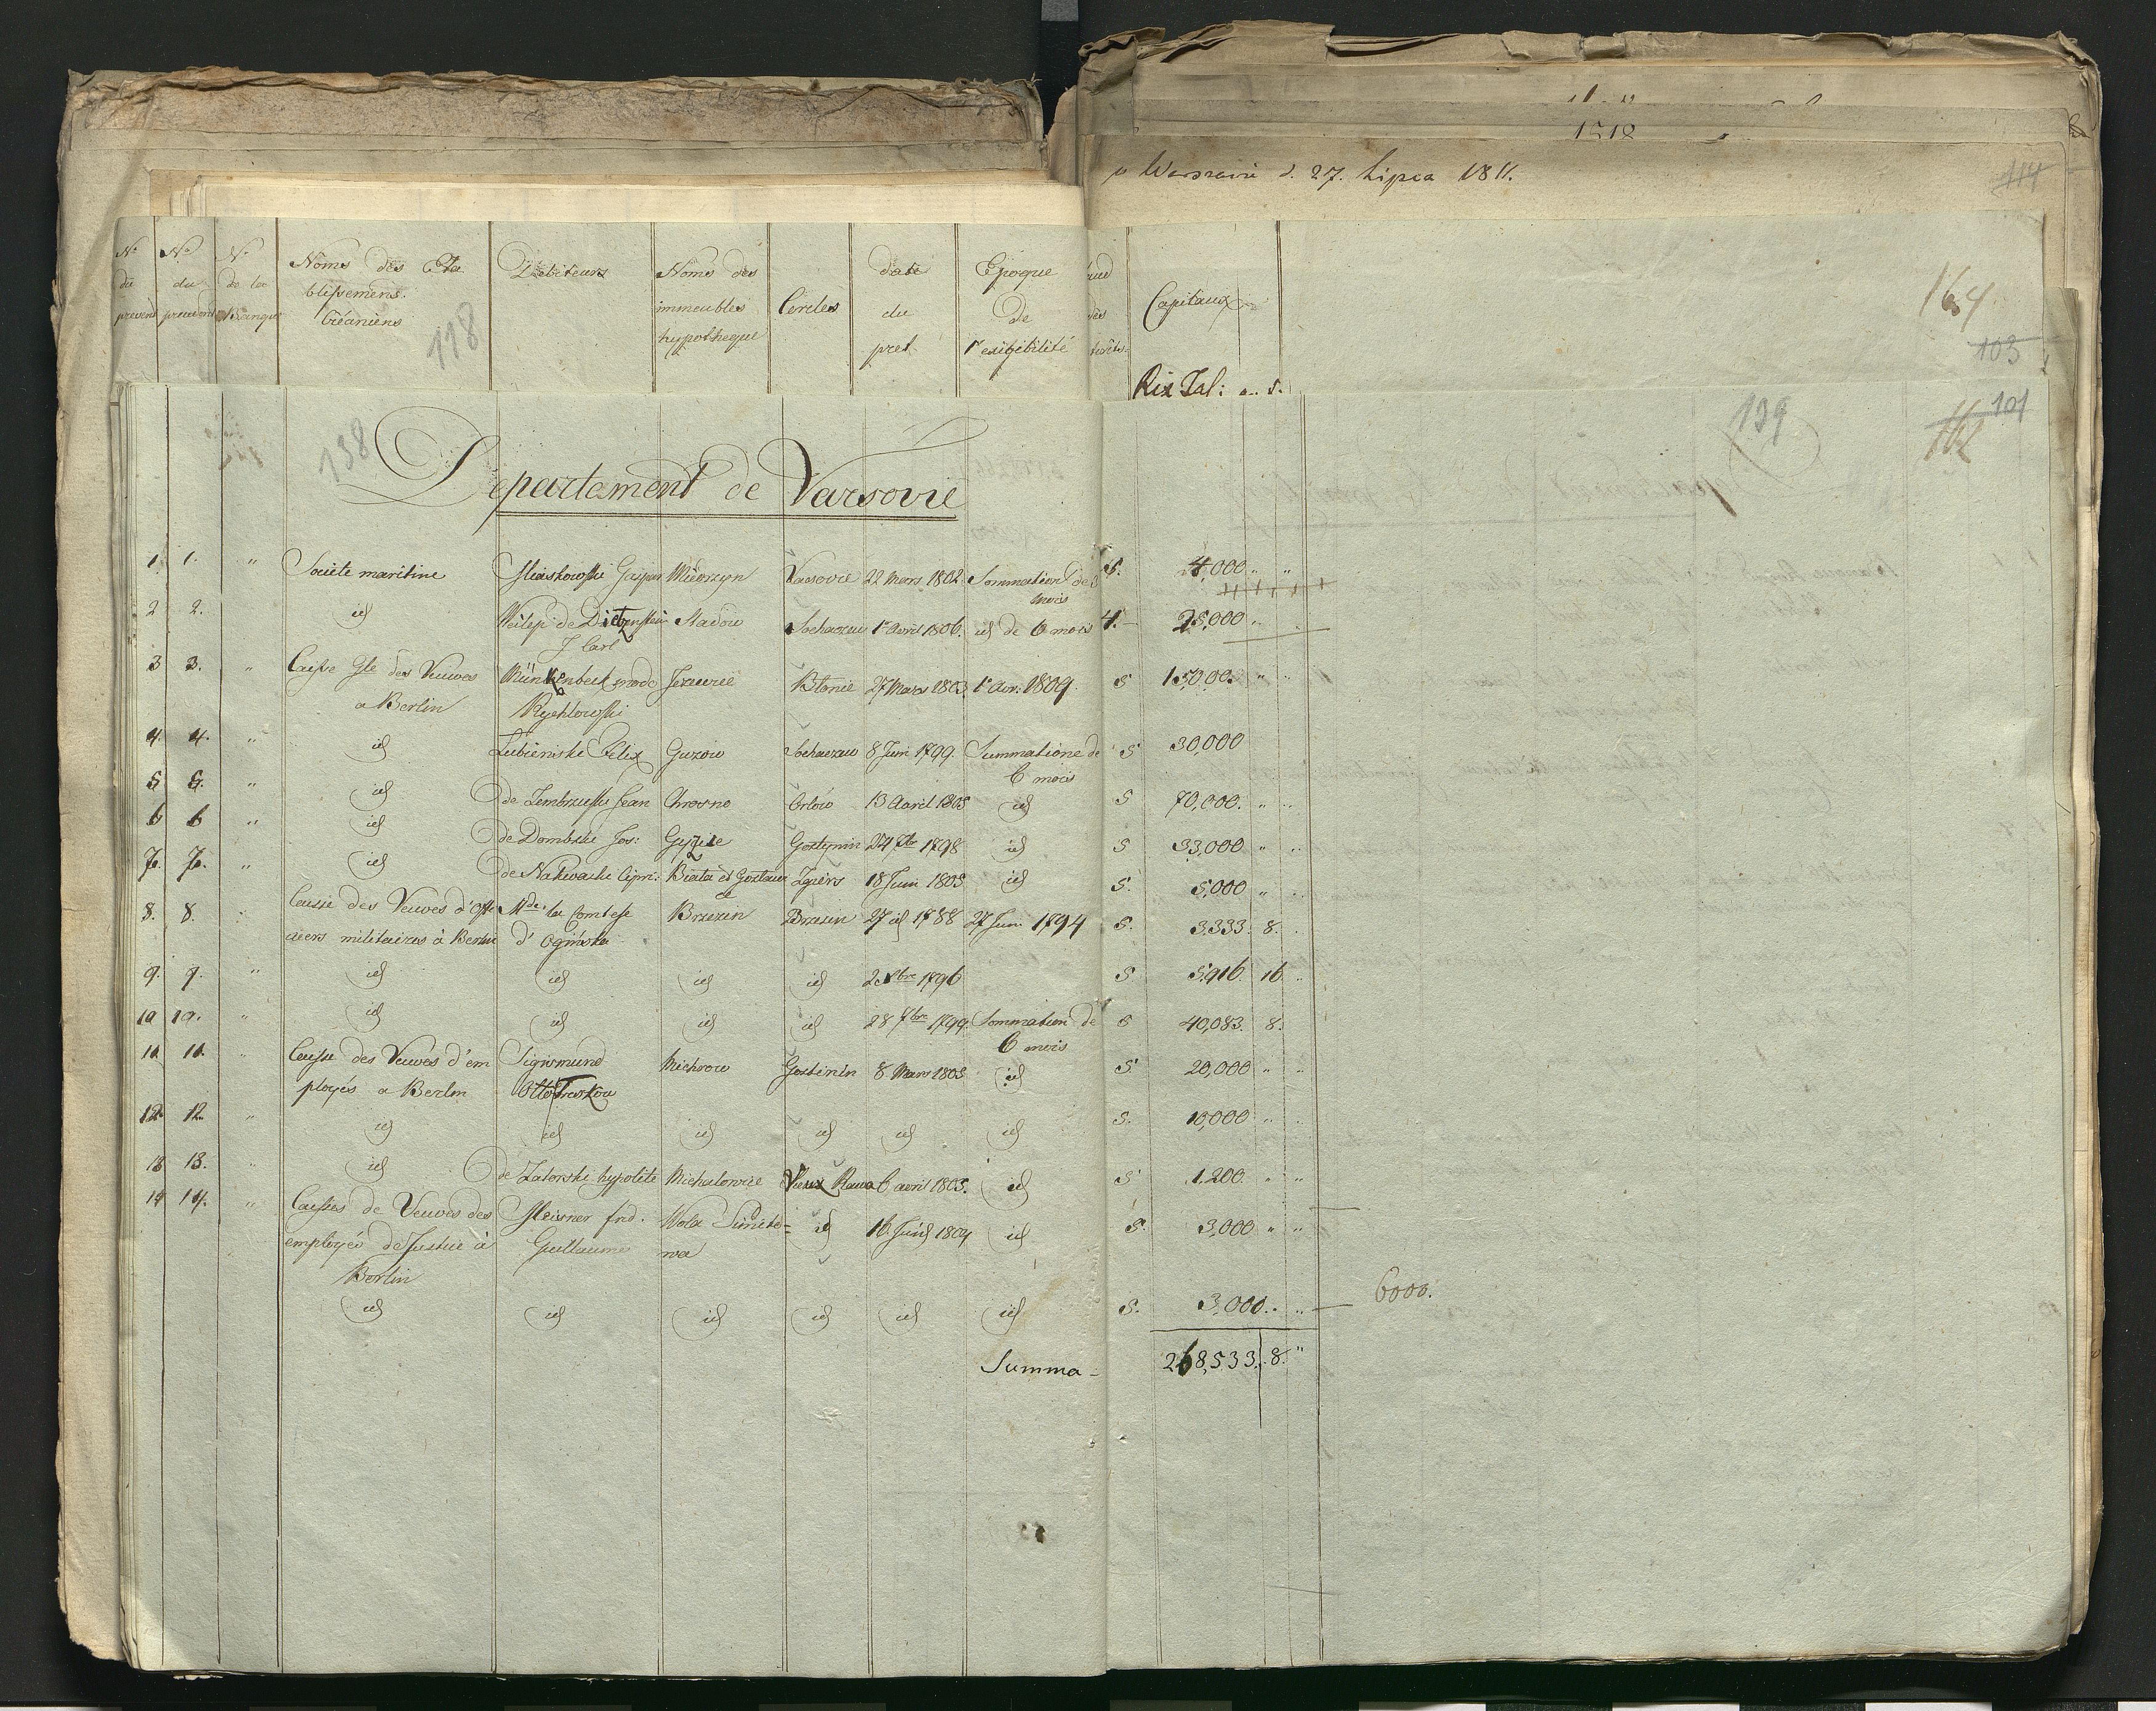 1518
w Warszawie d. 27. Lipca 1811.
114
No du present
No du precedent
No de la Banque
Noms des Eta
blissemens
Créanciers
118
Debiteurs
Noms des
immeubles
hypotheque
Cercles
date
du
pret.
Epoque
de
l'exigibilité
Capitaux
164
103
Rix Tal:
138
139
101
162
Departement de Varsovie
1. 1. " Societé maritime Gaspar Varsovie 22 Mars 1802. Sommation de 3 5. 4,000 " "
mois
2 2. id Sochaczew 1r Avril 1806. id de 6 mois 4. 25,000 "
J Carl
3 3. " Caisse Gle des Veuves modo Blonie 27 Mars 1803. 1r Avr: 1809. 5 15000. " "
a Berlin Rychlowski
4. 4. " id Lubienski Felix Guzow Sochaczew 8 Juin 1799. Summatione de 5 30,000
6 mois
5 5. " id de Jean Chrosno Orlow 13 Avril 1805 id 5 70,000. " "
6 6 " id de Dombski Jos: Gostynin 24 1798 id 5 33,000 " "
7. 7. " id de Nakwaski Cipri: Biała et Zgiers 18 Juin 1805 id 5. 5,000 "
8. 8. " Caisse des Veuves d'offi Mde la Comtesse Brzezin Brzezin 27 id 1788 27 Juin 1794 5. 3,333. 8.
ciers militaires à Berlin d'Oginska
9. 9. " id id id id 1796 5 5,916. 16 "
10 10. " id id id id 28 7bre 1799. Sommation de 5 40,083. 8.
6 mois
11. 11. " Caisse des Veuves d'em Sigismund Michrow Gostinin 8 Mars 1805 id 5. 20,000 " "
ployés a Berlin Otto Treskow
12 12. " id id id id id id 5. 10,000 "
13 13. " id de Zatorski hypolite Michalowice Vieux Rawa 6 avril 1805. id 5 1.200. " "
14 14. " Caisses de Veuves des Meisner frid. Wola id 16 Juin 1804 id 5. 3,000 " "
employés de Justice à Guillaume
Berlin
id id id id id id 5. 3,000. " 6000.
Summa - 268,533. 8. "